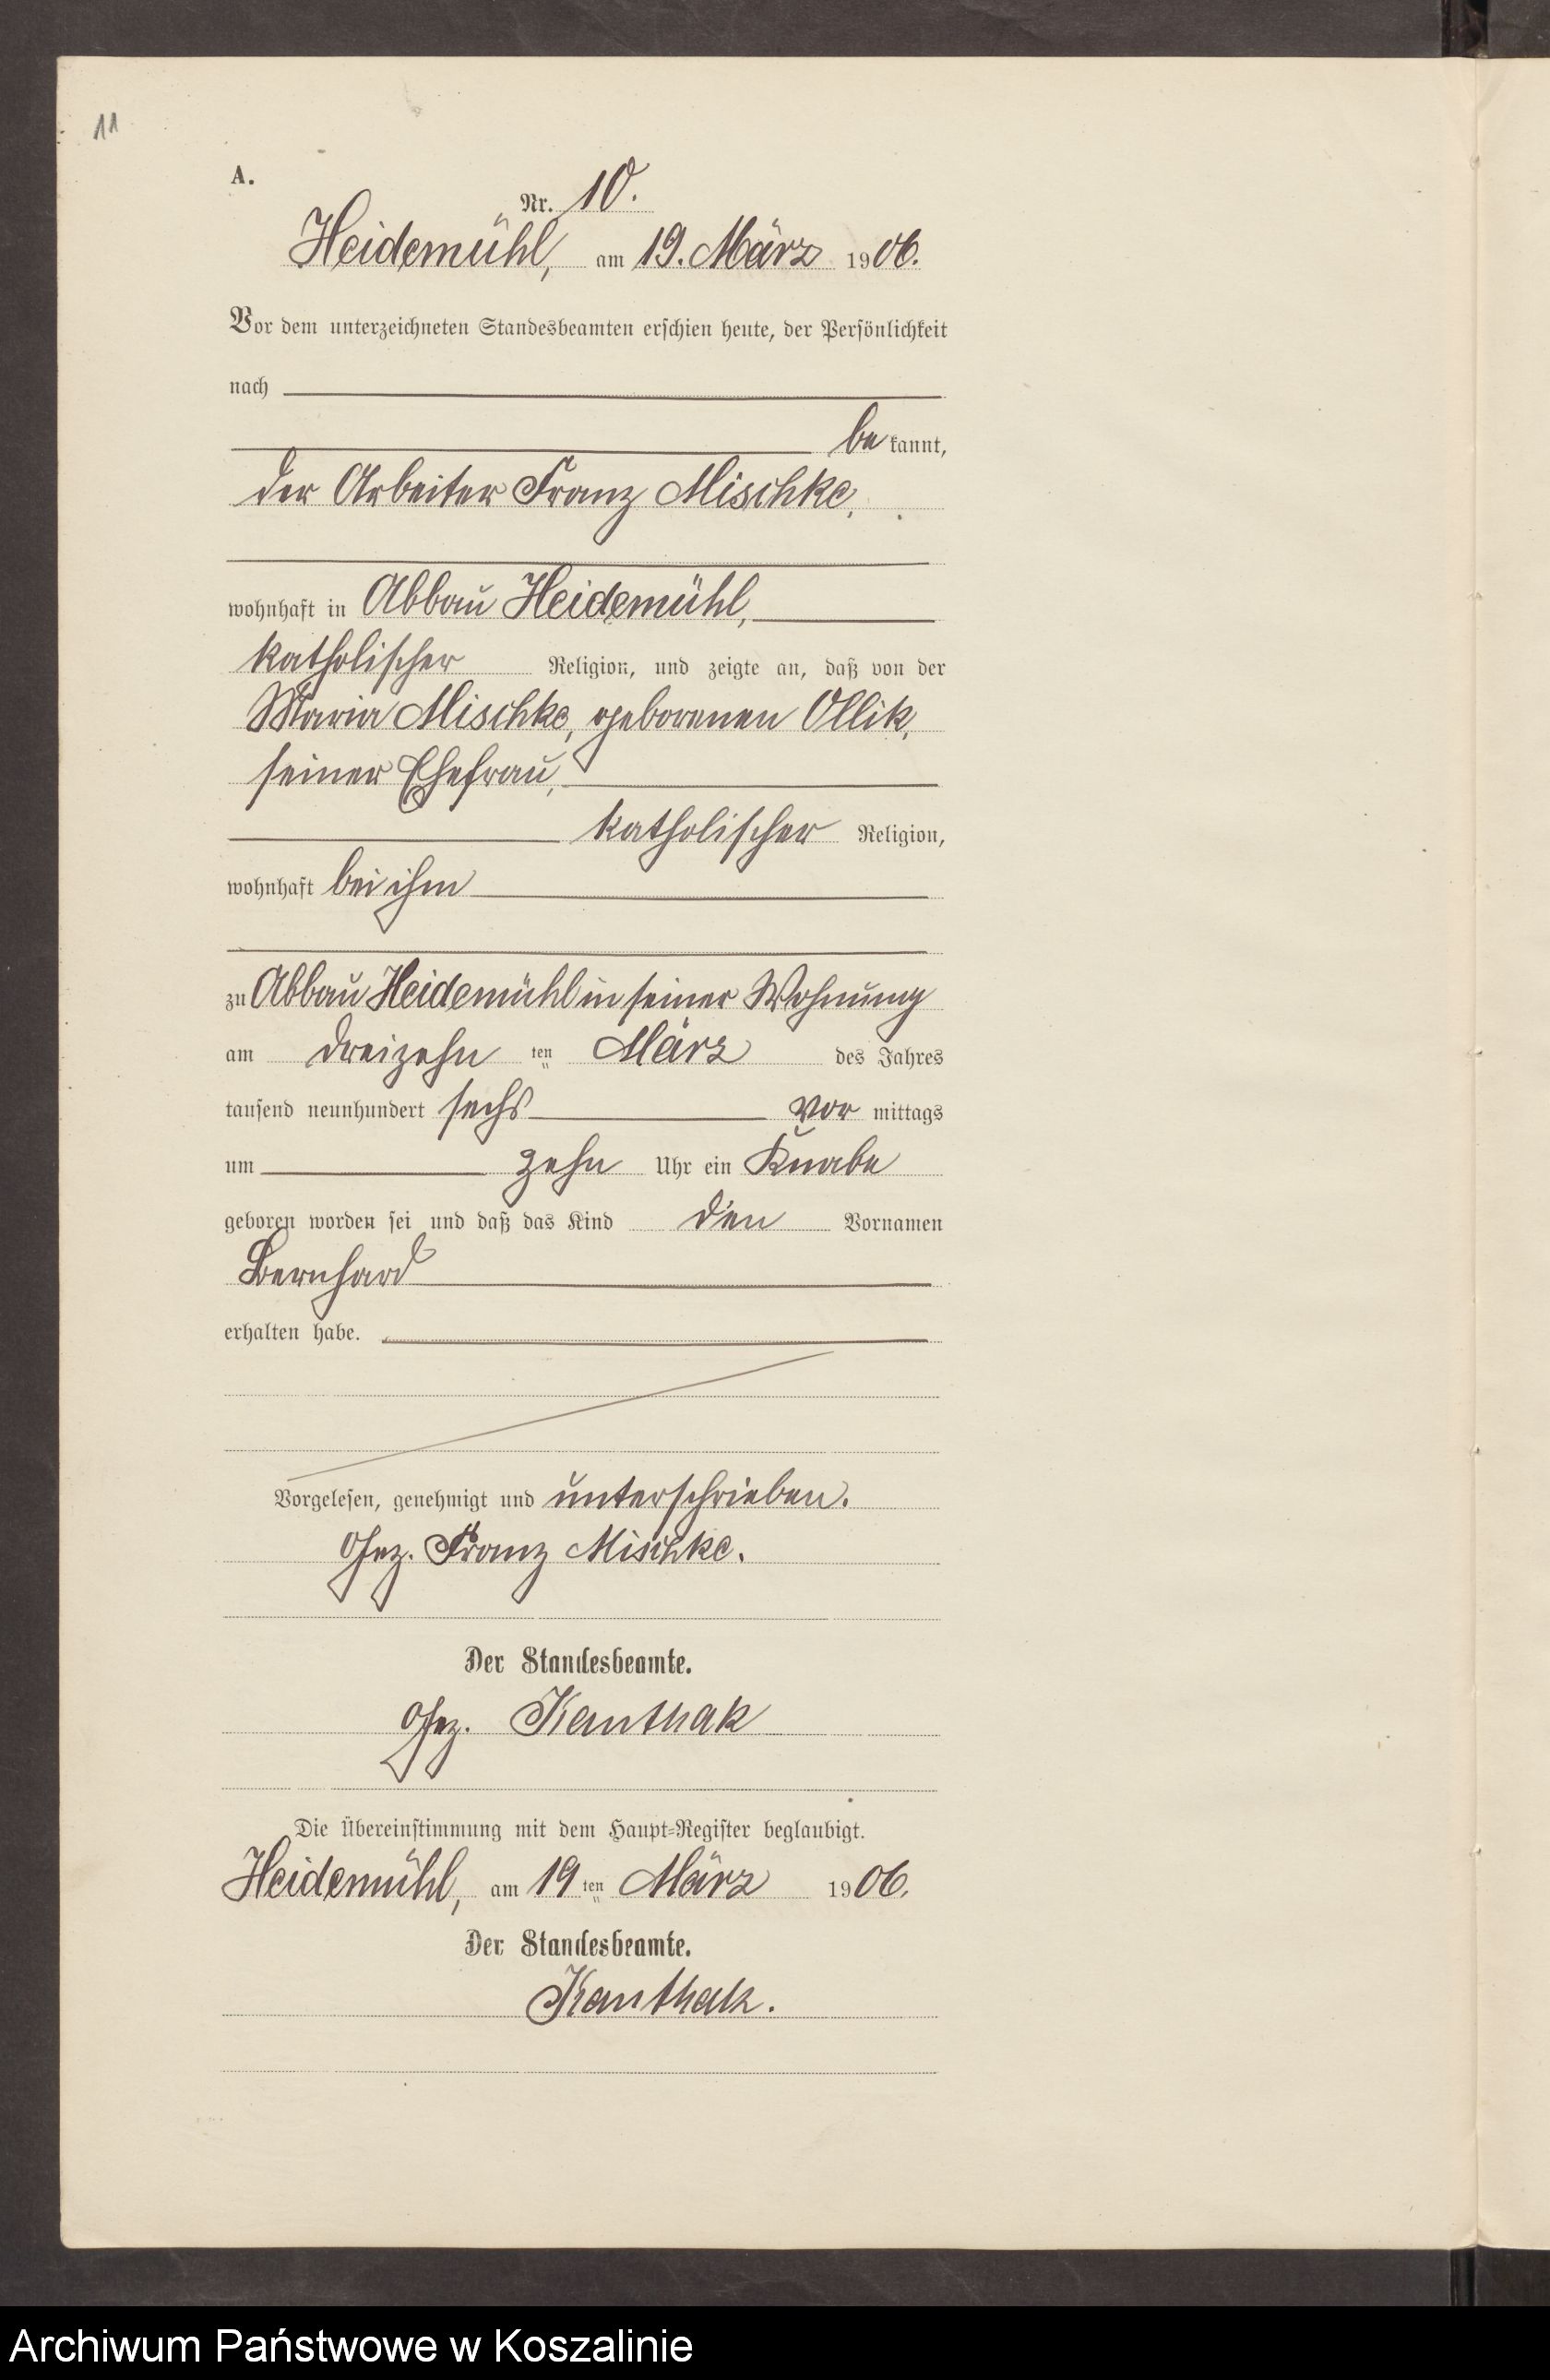 11
A.
Nr. 10.
Heidemühl, am 19. März 1906.
Vor dem unterzeichneten Standesbeamten erschien heute, der Persönlichkeit
nach
be kannt,
der Arbeiter Franz Mischke,
wohnhaft in Abbau Heidemühl,
katholischer Religion, und zeigte an, daß von der
Maria Mischke, geborenen Ollik,
seiner Ehefrau,
katholischer Religion,
wohnhaft bei ihm
zu Abbau Heidemühl in seiner Wohnung
am dreizehn ten März des Jahres
tausend neunhundert sechs vor mittags
um zehn Uhr ein Knabe
geboren worden sei und daß das Kind den Vornamen
Bernhard
erhalten habe.
Vorgelesen, genehmigt und unterschrieben.
Gez. Franz Mischke.
Der Standesbeamte.
Gez. Kanthak
Die Übereinstimmung mit dem Haupt-Register beglaubigt.
Heidemühl, am 19 ten März 1906.
Der Standesbeamte.
Kanthak.
Archiwum Państwowe w Koszalinie